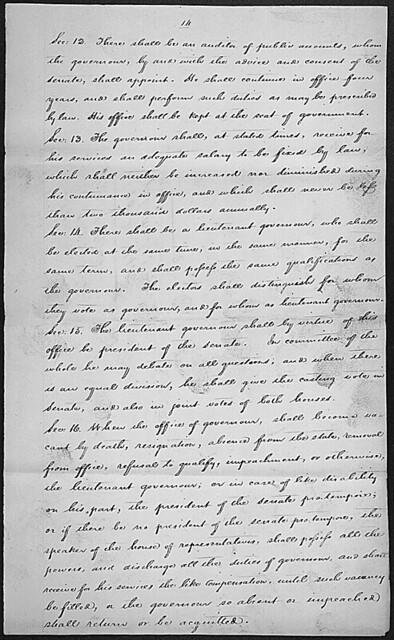 14
Sec: 12. There shall be an auditor of public accounts, whom
the governour, by and with the advice and consent of the
senate, shall appoint. He shall continue in office four
years, and shall perform such duties as may be prescribed
by law. His office shall be kept at the seat of government.
Sec: 13. The governour shall, at stated times, receive for
his services an adequate salary to be fixed by law;
which shall neither be increased nor diminished during
his continuance in office, and which shall never be less
than two thousand dollars annually.
Sec: 14. There shall be a lieutenant governour, who shall
be elected at the same time, in the same manner, for the
same term, and shall possess the same qualifications as
the governour. The electors shall distinguish for whom
they vote as governour, and for whom as lieutenant governour.
Sec: 15. The lieutenant governour shall by virtue of his
office be president of the senate. In committee of the
whole he may debate on all questions; and when there
is an equal division, he shall give the casting vote in
senate, and also in joint votes of both houses.
Sec: 16. When the office of governour, shall become va-
cant by death, resignation, absence from the state, removal
from office, refusal to qualify, impeachment, or otherwise,
the lieutenant governour; or in case of like disability
on his part, the president of the senate pro. tempore;
or if there be no president of the senate pro. tempore, the
speaker of the house of representatives, shall possess all the
powers, and discharge all the duties of governour, and shall
receive for his services the like compensation, until such vacancy
be filled, or the governour so absent or impeached
shall return or be acquitted.